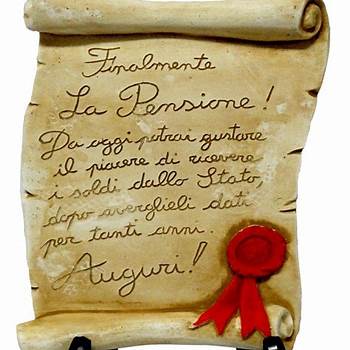 Finalmente
La Pensione!
Da oggi potrai gustare
il piacere di ricevere
i soldi dallo Stato,
dopo averglieli dati
per tanti anni.
Auguri!